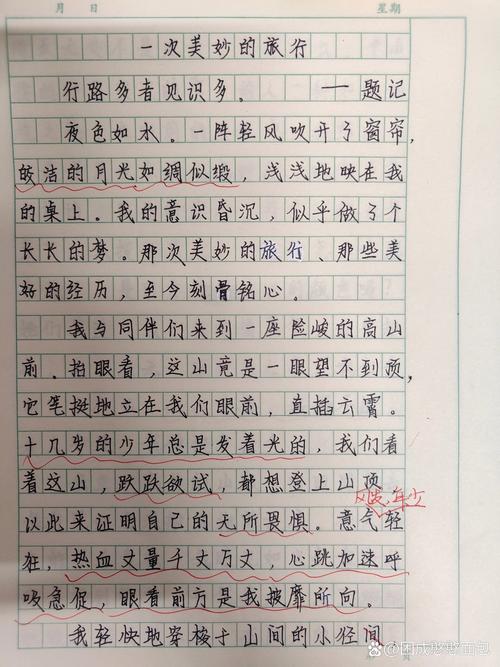 月 日 星期
一次美妙的旅行
行路多者见识多。 ——题记
夜色如水。一阵轻风吹开了窗帘，
皎洁的月光如绸似缎，浅浅地映在我
的桌上。我的意识昏沉，似乎做了个
长长的梦。那次美妙的旅行、那些美
好的经历，至今刻骨铭心。
我与同伴们来到一座险峻的高山
前．抬眼看，这山竟是一眼望不到顶，
它笔挺地立在我们眼前，直插云霄。
十几岁的少年总是发着光的，我们看
着这山，跃跃欲试，都想登上山顶
年少
以此来证明自己的无所畏惧。意气轻
狂，热血丈量千丈万丈，心跳加速呼
吸急促，眼看前方是我披靡所向。
我轻快地穿梭于山间的小径间，
@困成憨憨面包